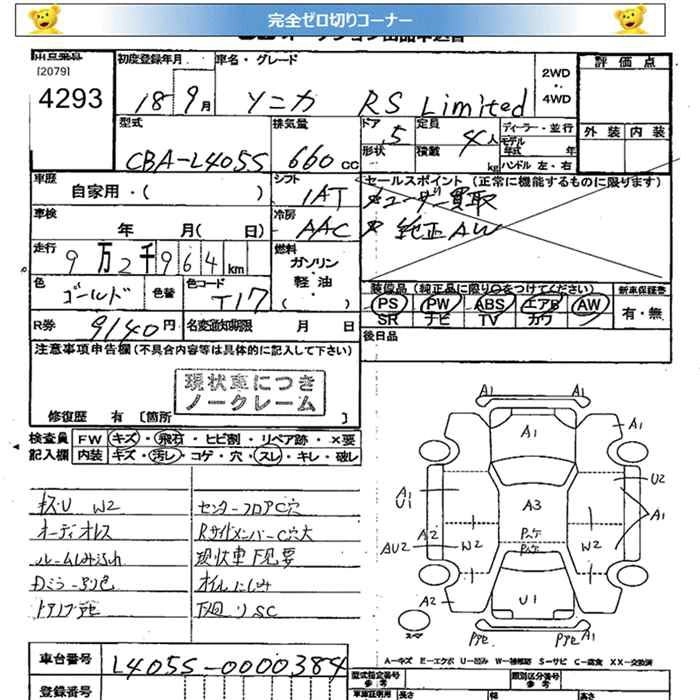 完全ゼロ切りコーナー
[2079]
4293
初度登録年月
18 9月
車名・グレード
ソニカ RS Limited
2WD
・・
4WD
評価点
外装 内装
型式
CBA-L405S
排気量
660cc
ドア 5
定員 4人
形状
積載 kg
ディーラー・並行
モデル年式 年
ハンドル 左・右
車歴
自家用・( )
シフト
IAT
セールスポイント (正常に機能するものに限ります)
ユーザー買取
純正AW
車検
年 月( 日)
冷房
AAC
走行
9万2千964km
燃料
ガソリン
・
軽油
・
( )
色
ゴールド
色替
色コード
T17
装備品 (純正品に限り○をつけてください)
PS PW ABS エアB AW
SR ナビ TV カワ
新車保証書
有・無
R券
9140円
名変期限 月 日
後日品
注意事項申告欄 (不具合内容等は具体的に記入して下さい)
現状車につき
ノークレーム
修復歴 有 [箇所 ]
検査員
記入欄
FW キズ・飛石・ヒビ割・リペア跡・×要
内装 キズ・汚レ・コゲ・穴・スレ・キレ・破レ
キズU W2
オーディオレス
ルームしみ汚れ
センターフロアC穴
RサイドメンバーC穴大
現状車下見要
オイルにじみ
下廻りSC
A1
A1
A1
A1
U1
A3
U2
A1
A2
AU2
W2
W2
A2
U1
A1
A-キズ E-エクボ U-凹み W-補修跡 S-サビ C-腐食 XX-交換済
車台番号
L405S-0000384
登録番号
型式指定番号
参考
類別区分番号
参考
長さ
幅
高さ